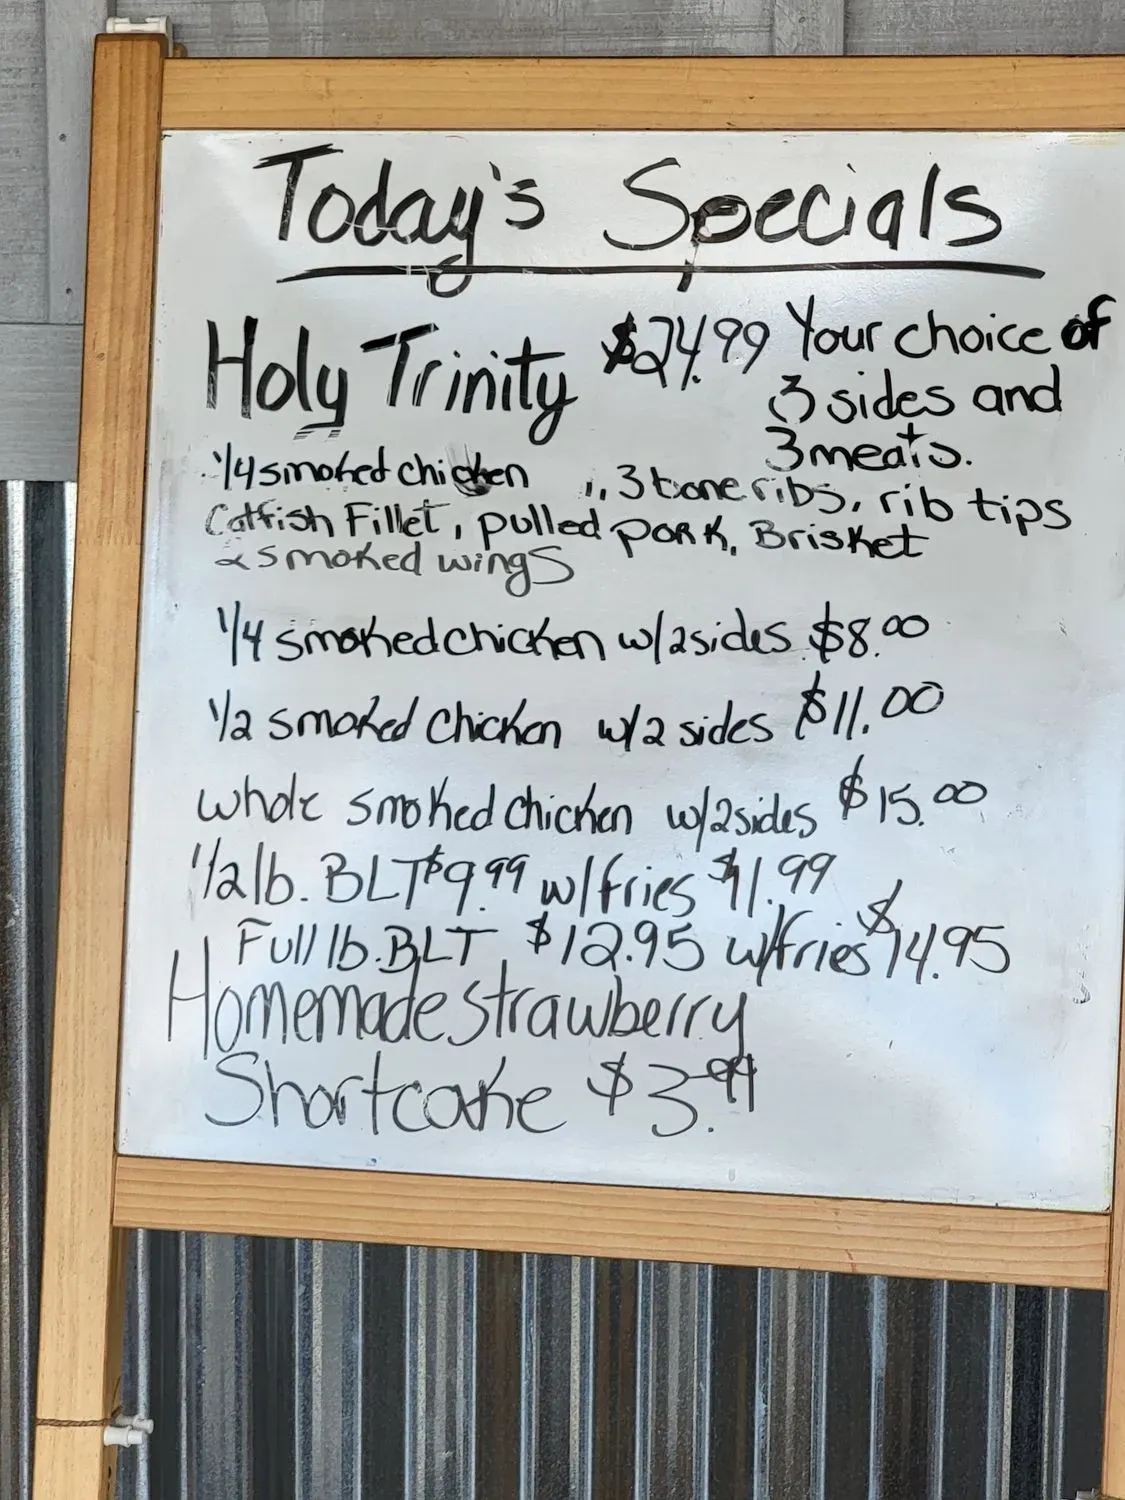 Today's Specials
Holy Trinity $24.99 Your choice of
3 sides and
3 meats.
1/4 smoked chicken ,, 3 bone ribs, rib tips
Catfish Fillet, pulled pork, Brisket
2 smoked wings
1/4 smoked chicken w/2 sides $8.00
1/2 smoked chicken w/2 sides $11.00
whole smoked chicken w/2 sides $15.00
1/2 lb. BLT $9.99 w/fries $11.99
Full lb. BLT $12.95 w/fries $14.95
Homemade strawberry
Shortcake $3.99